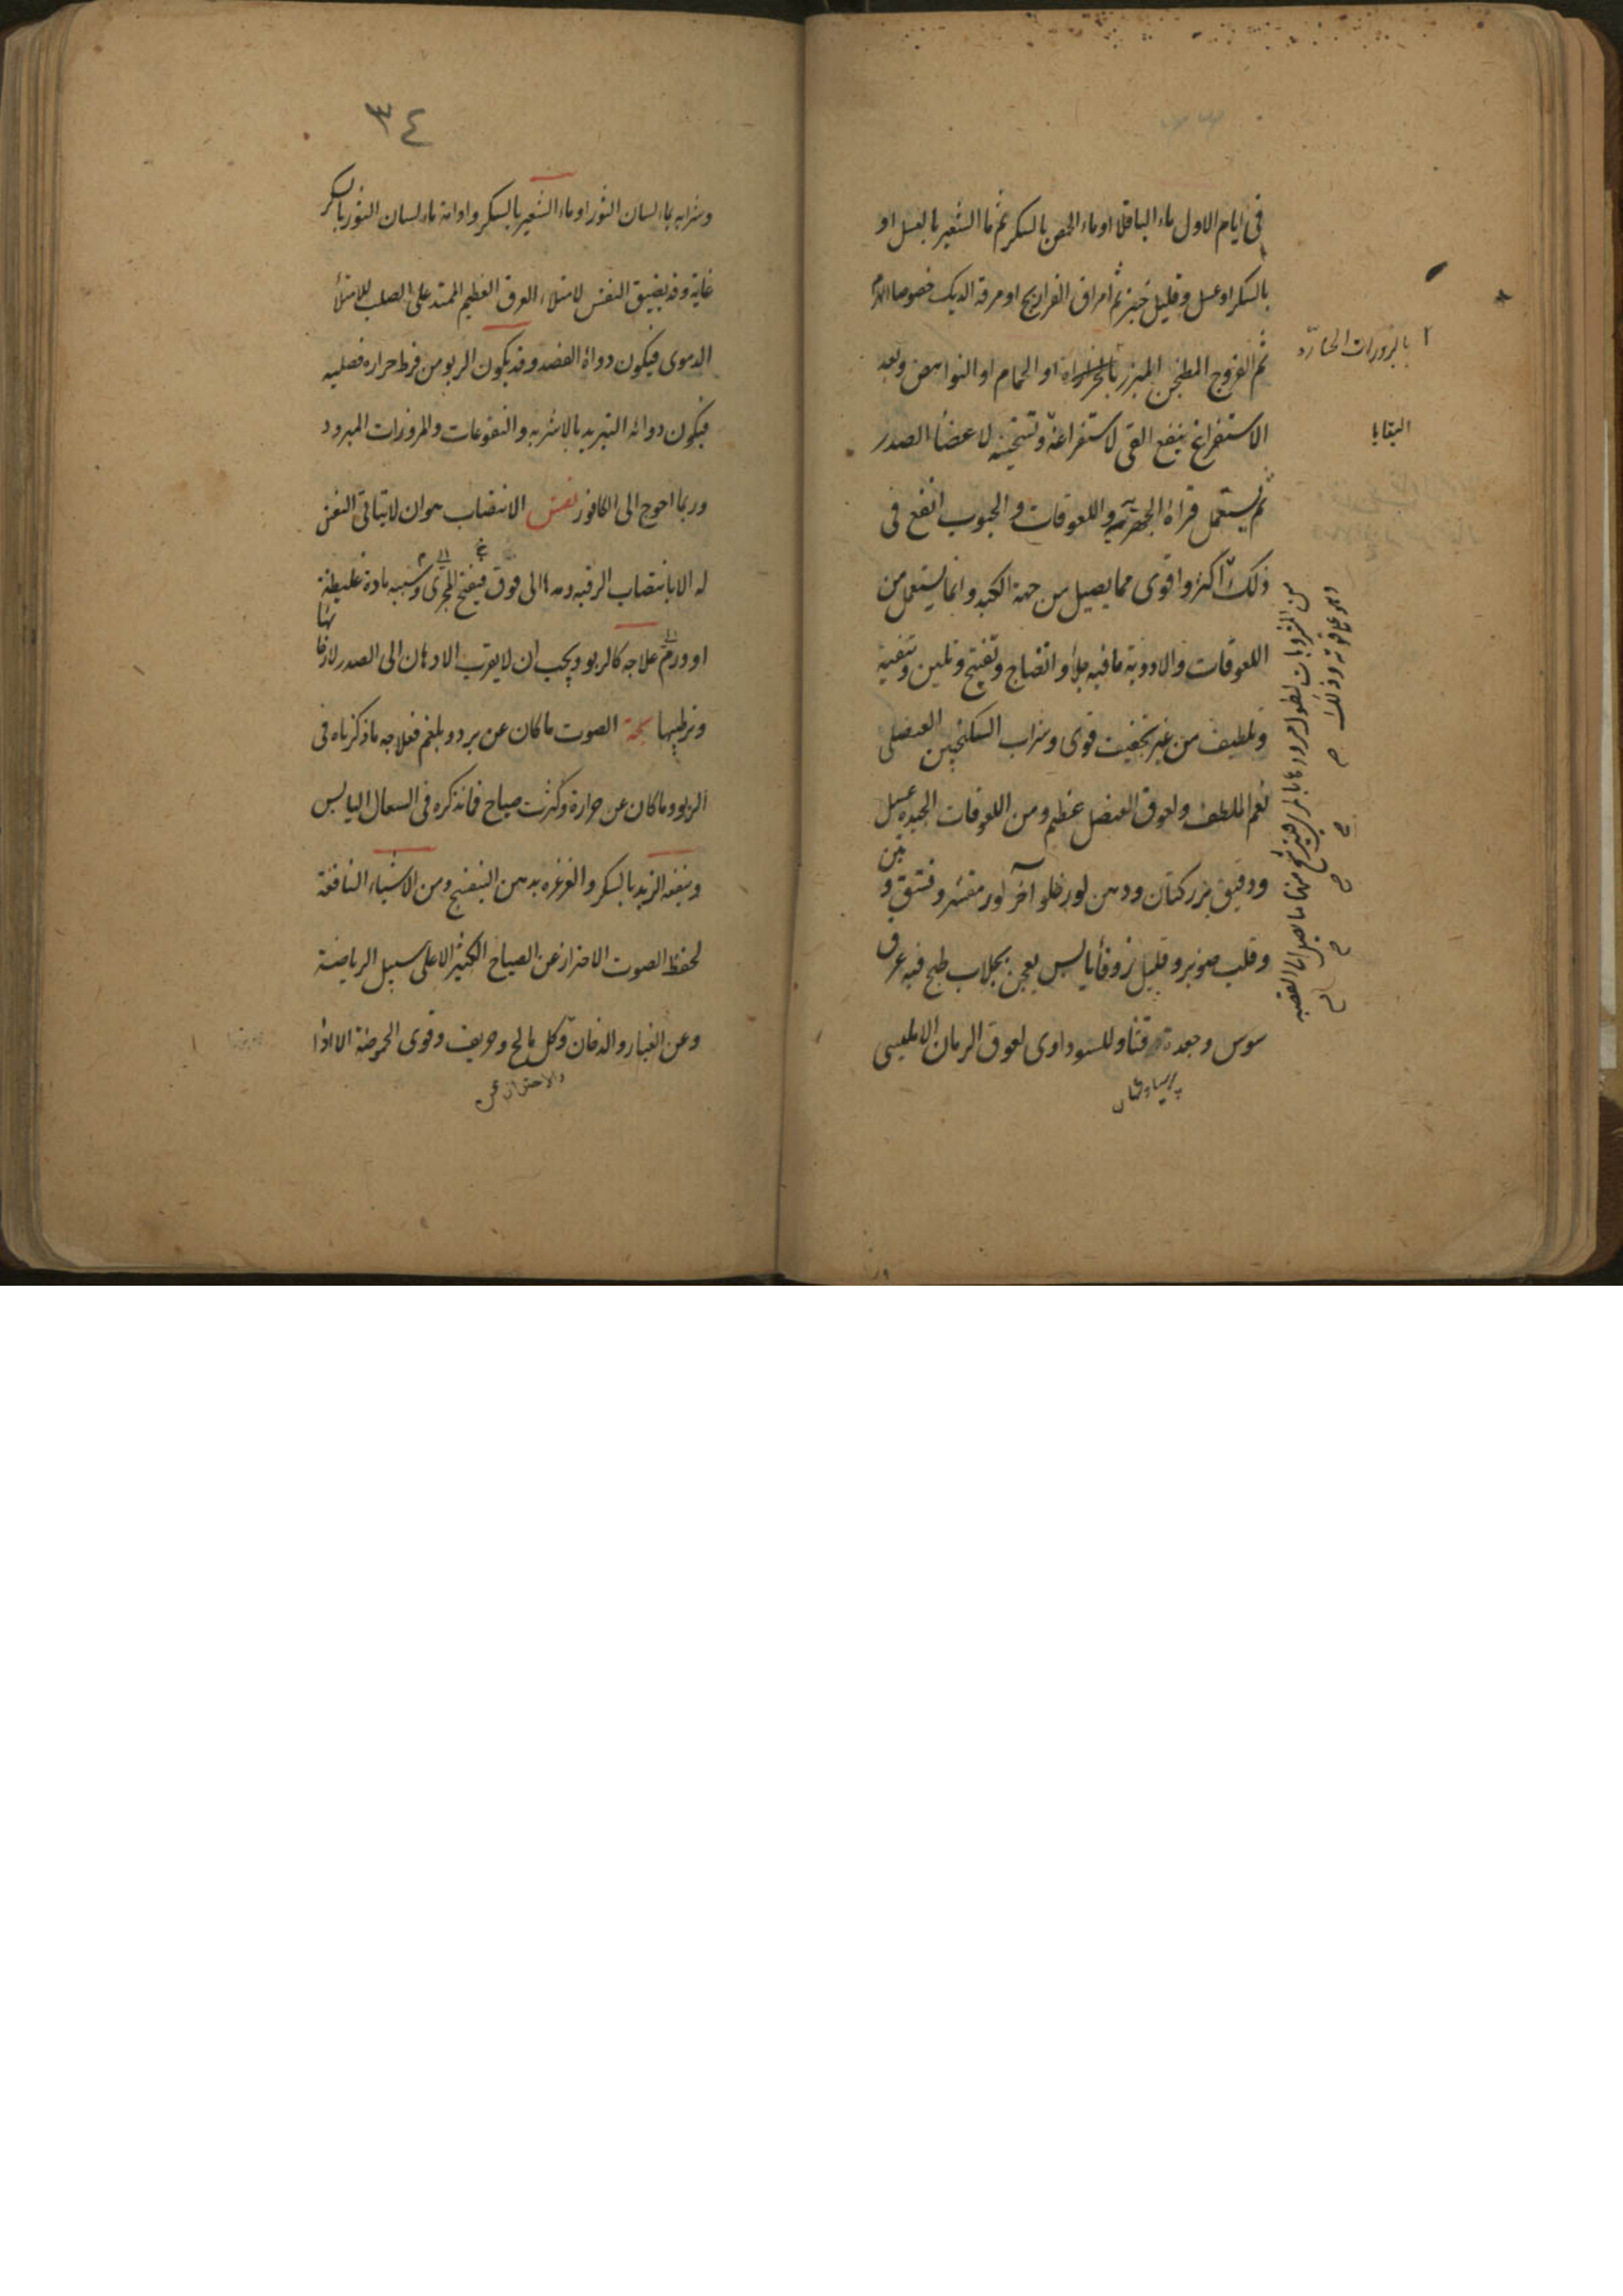 فى ايام الاول ماء الباقلا او ماء الحمص بالسكر ثم ما الشعير بالعسل او
بالسكر او عسل وقليل خبز ثم امراق الفراريج او مرقة الديك خصوصا الهرم
ثم الفروج المطجن المبزر او الحمام او النواهض وبعد
بالبزورات الحارة
الاستفراغ ينفع القى لاستفراغه وتسخينه لاعضاء الصدر
البقايا
ثم يستعمل واللعوقات و الحبوب انفع فى
ذلك اكثر واقوى مما يصيل من جهة الكبد وانما يستعمل من
اللعوقات والادوية ما فيه جلأ و انضاج وتفتيح وتلين وتنقية
وتلطيف من غير تجفيف قوى وشراب السكنجبين العنصلى
نعم الملطف ولعوق العنصل عظيم ومن اللعوقات الجيدة عسل
ودقيق بزر كتان ودهن لوز حلو آخر لوز مقشر وفستق وتين
وقلب صنوبر وقليل زوفا يابس يعجن بجلاب طبخ فيه عرق
سوس وجعدة وللسوداوى لعوق الرمان الامليسى
پرسياوشان
٣٤
وشرابه بماء لسان الثور او ماء الشعير بالسكر وادامة ماء لسان الثور بالسكر
غاية وقد يضيق النفس لامتلاء العرق العظيم الممتد على الصلب للامتلأ
الدموى فيكون دواؤه الفصد وقد يكون الربو من فرط حرارة فصليه
فيكون دوائه التبريد بالاشربه والنقوعات والمزورات المبرود
وربما احوج الى الكافور نفس الانتصاب هو ان لا يتاتى النفس
له الا بانتصاب الرقبه ومدها الى فوق فينفتح المجرى وسببه مادة غليظة
او ورم علاجه كالربو ويجب ان لا يقرب الادهان الى الصدر لارخائها
وترطيبها بحة الصوت ما كان عن برد و بلغم فعلاجه ما ذكرناه فى
الربو وما كان عن حرارة وكثرت صياح فانذكره فى السعال اليابس
وينفعه الزبد بالسكر والغرغره بدهن البنفسج ومن الاشياء النافعة
لحفظ الصوت الاحتراز عن الصياح الكثير الا على سبيل الرياضة
وعن الغبار والدخان وكل مالح وحريف وقوى الحموضة الا اذا
والاحتراز عن